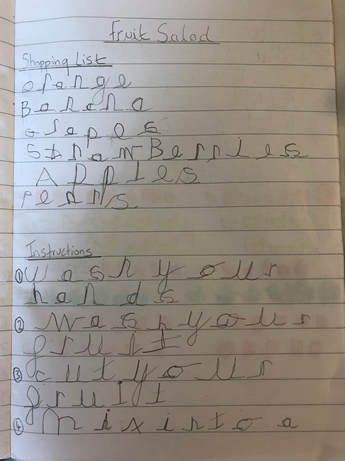 Fruit Salad
Shopping List
orange
Banana
Grapes
StrawBerries
Apples
pears
Instructions
① wash your
hands
② wash your
fruit
③ cut your
fruit
④ mix into a